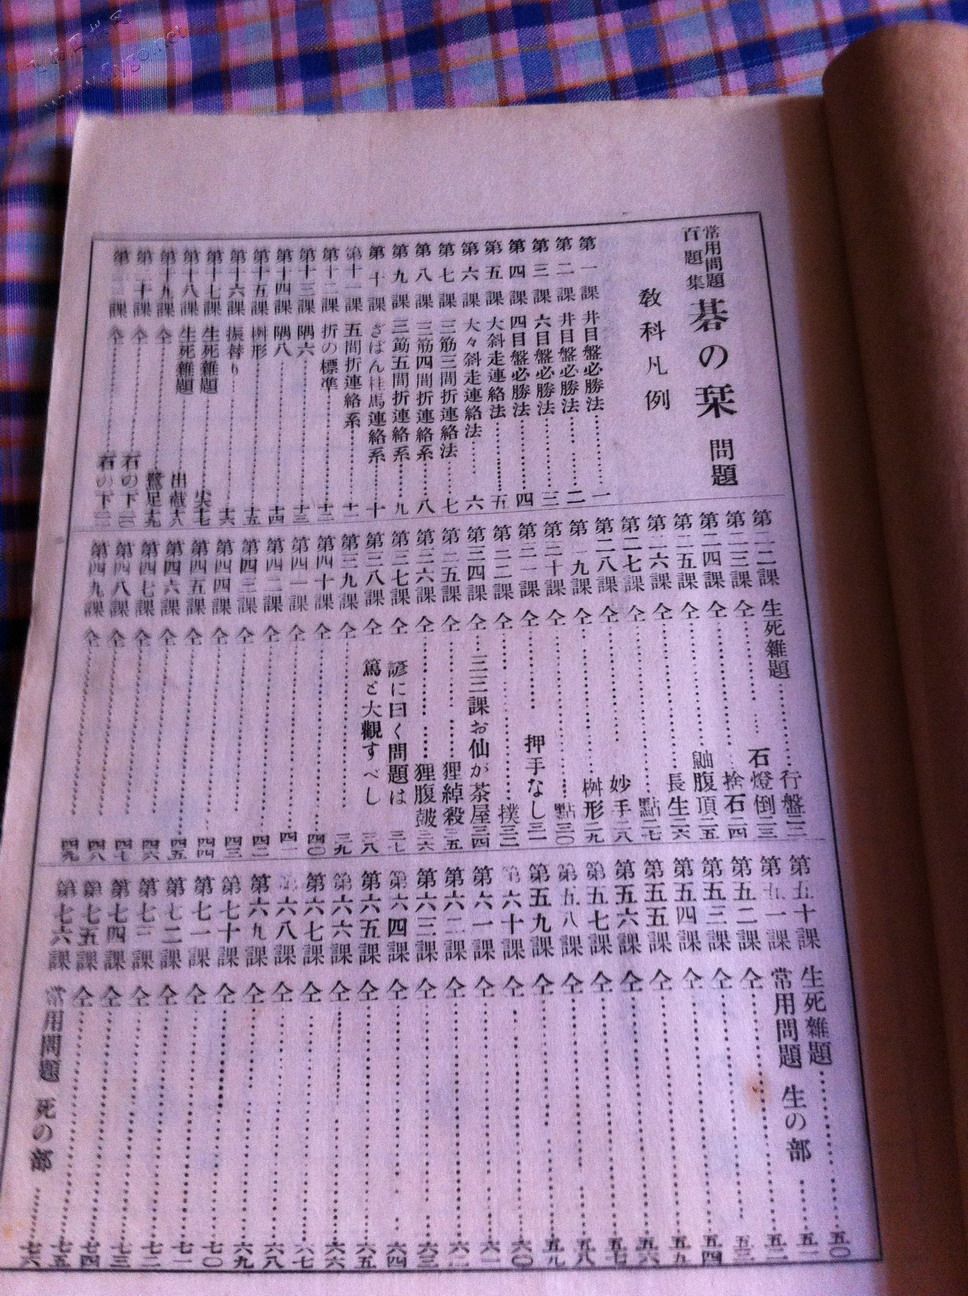 常用問題
百題集
碁の栞 問題
教科凡例
第一課 井目盤必勝法 一
第二課 井目盤必勝法 二
第三課 六目盤必勝法 三
第四課 四目盤必勝法 四
第五課 大斜走連絡法 五
第六課 大々斜走連絡法 六
第七課 三筋三間折連絡法 七
第八課 三筋四間折連絡系 八
第九課 三筋五間折連絡系 九
第十課 ぎばん桂馬連絡系 十
第十一課 五間折連絡系 十一
第十二課 折の標準 十二
第十三課 隅六 十三
第十四課 隅八 十四
第十五課 桝形 十五
第十六課 振替り 十六
第十七課 生死雜題 尖 十七
第十八課 生死雜題 出献 十八
第十九課 仝 鷺足 十九
第二十課 仝 石の下 二〇
第二一課 仝 石の下 二一
第二二課 生死雜題 行盤 二二
第二三課 仝 石燈倒 二三
第二四課 仝 捨石 二四
第二五課 仝 鼬腹頂 二五
第二六課 仝 長生 二六
第二七課 仝 點 二七
第二八課 仝 妙手 二八
第二九課 仝 桝形 二九
第三十課 仝 點 三〇
第三一課 仝 押手なし 三一
第三二課 仝 撲 三二
第三四課 仝 三三課お仙が茶屋 三四
第三五課 仝 狸綽殺 三五
第三六課 仝 狸腹鼓 三六
第三七課 仝 諺に曰く問題は 三七
第三八課 仝 篤と大觀すべし 三八
第三九課 仝 三九
第四十課 仝 四〇
第四一課 仝 四一
第四二課 仝 四二
第四三課 仝 四三
第四四課 仝 四四
第四五課 仝 四五
第四六課 仝 四六
第四七課 仝 四七
第四八課 仝 四八
第四九課 仝 四九
第五十課 生死雜題 五〇
第五一課 常用問題 生の部 五一
第五二課 仝 五二
第五三課 仝 五三
第五四課 仝 五四
第五五課 仝 五五
第五六課 仝 五六
第五七課 仝 五七
第五八課 仝 五八
第五九課 仝 五九
第六十課 仝 六〇
第六一課 仝 六一
第六二課 仝 六二
第六三課 仝 六三
第六四課 仝 六四
第六五課 仝 六五
第六六課 仝 六六
第六七課 仝 六七
第六八課 仝 六八
第六九課 仝 六九
第七十課 仝 七〇
第七一課 仝 七一
第七二課 仝 七二
第七三課 仝 七三
第七四課 仝 七四
第七五課 仝 七五
第七六課 常用問題 死の部 七六